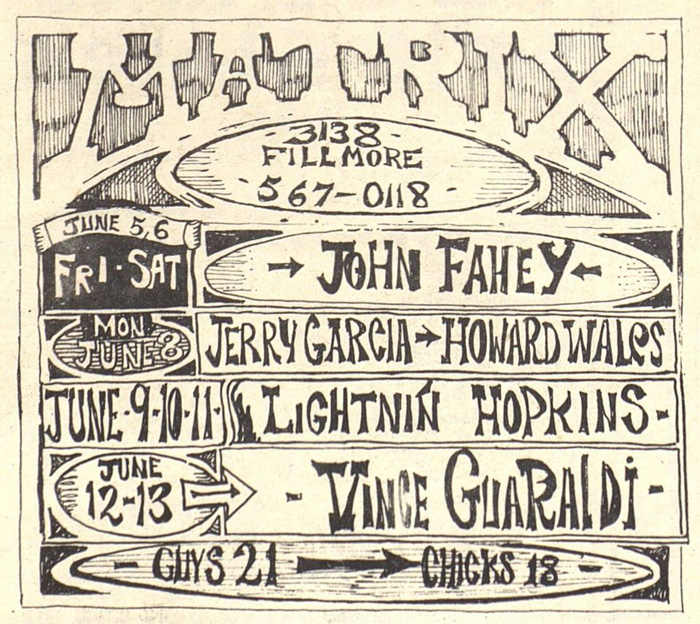 MATRIX
3138
FILLMORE
567-0118
JUNE 5,6
FRI·SAT
→ JOHN FAHEY ←
MON
JUNE 8
JERRY GARCIA → HOWARD WALES
JUNE·9·10·11·
LIGHTNIN HOPKINS-
JUNE
12-13
- VINCE GUARALDI -
- GUYS 21 → CHICKS 18 -